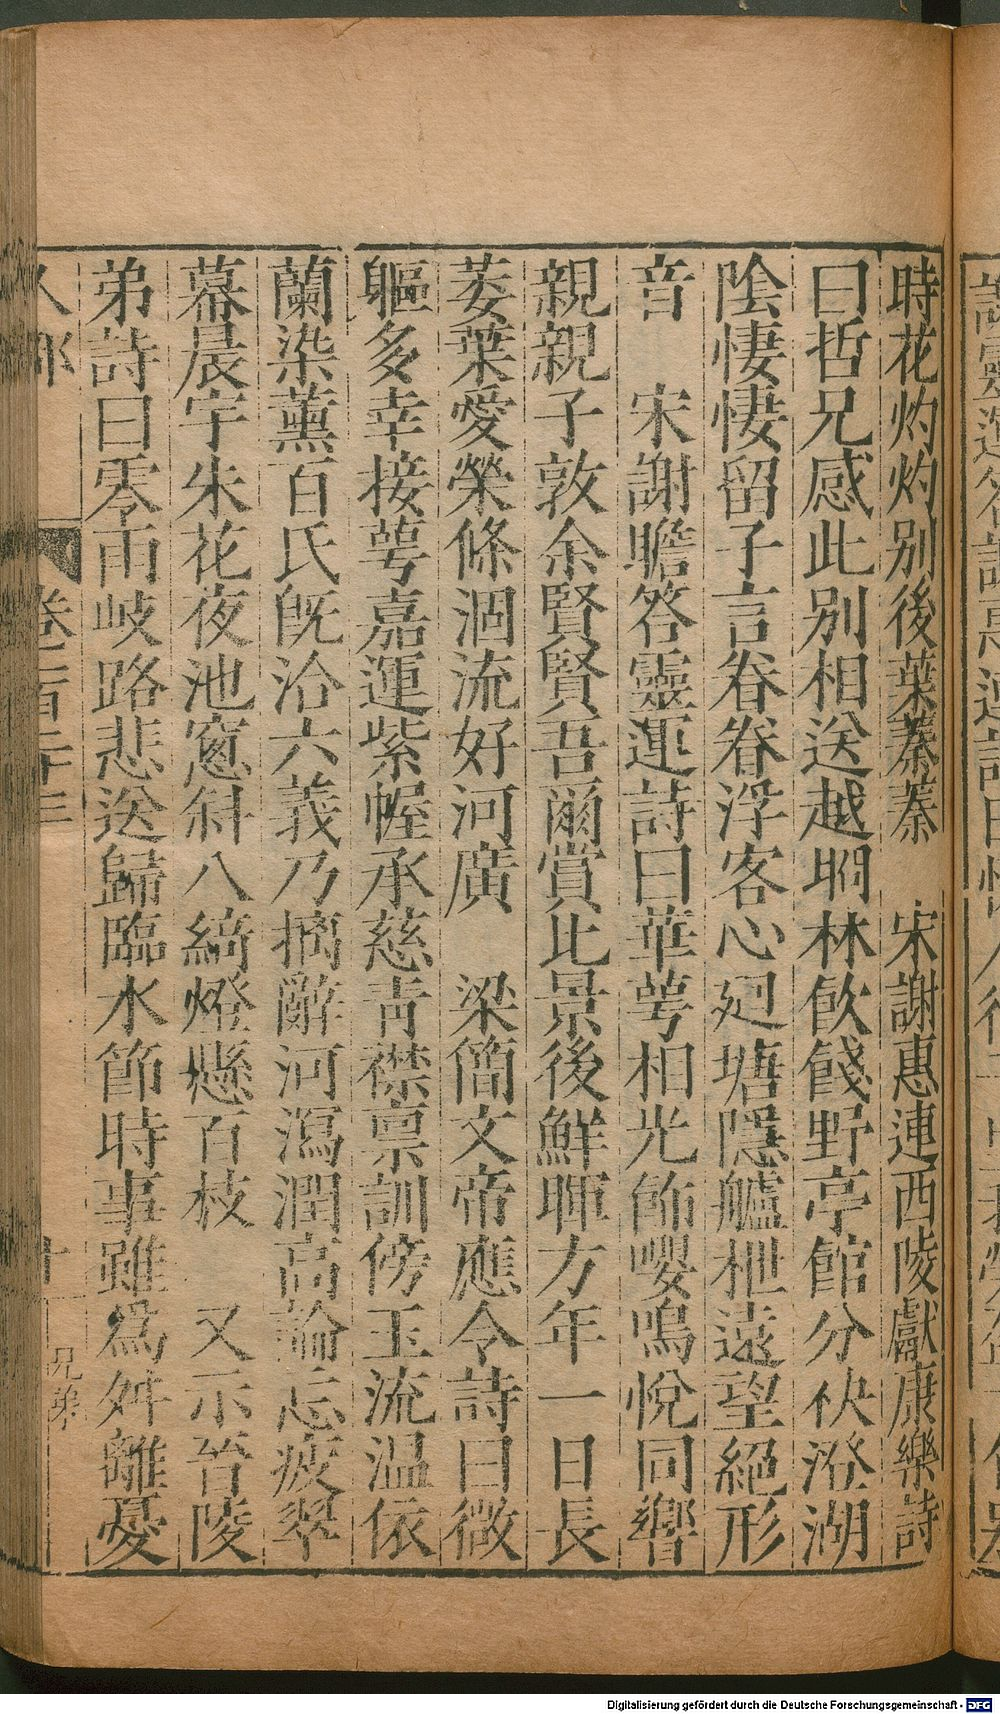 時花灼灼别後葉蓁蓁　宋謝惠連西陵獻康樂詩
曰哲兄感此别相送越坰林飲餞野亭館分袂澄湖
陰悽悽留子言眷眷浮客心廻塘隱艫枻遠望絕形
音　宋謝瞻答靈運詩曰華萼相光飾嚶鳴悅同響
親親子敦余賢賢吾爾賞比景後鮮暉方年一日長
萎葉愛榮條涸流好河廣　梁簡文帝應令詩曰微
軀多幸接萼嘉運紫幄承慈青襟禀訓傍玉流温依
蘭染薰百氏旣洽六義乃摛辭河瀉潤高論忘疲翠
幕晨宇朱花夜池窓斜八綺燈懸百枝　又示晉陵
弟詩曰零雨岐路悲送歸臨水節時事雖爲舛離憂
人部
卷二百五十三
十
兄弟
Digitalisierung gefördert durch die Deutsche Forschungsgemeinschaft - DFG